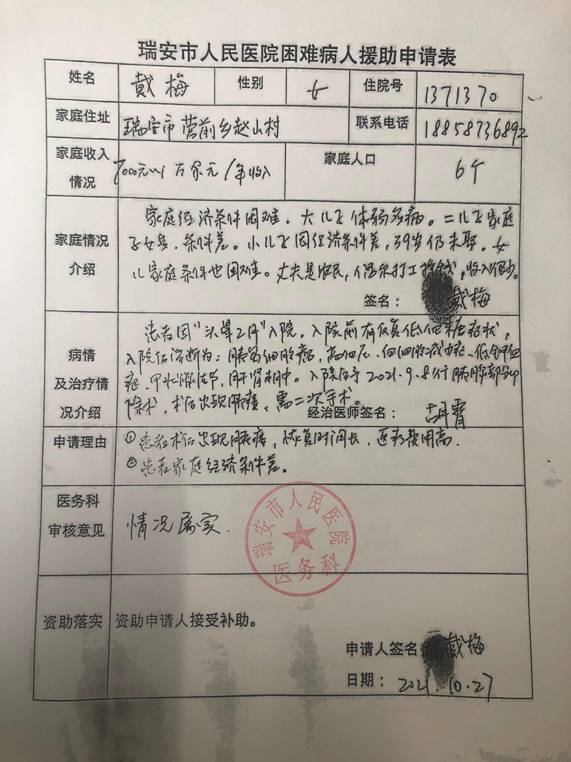 瑞安市人民医院困难病人援助申请表
姓名 戴梅 性别 女 住院号 1371370
家庭住址 瑞安市营前乡赵山村 联系电话 18858736892
家庭收入情况 7000元~1万余元/年收入 家庭人口 6个
家庭情况介绍
家庭经济条件困难。大儿子体弱多病。二儿子家庭
子女多,条件差。小儿子因经济条件差,39岁仍未娶。女
儿家庭条件也困难。丈夫是农民,偶尔打工挣钱,收入很少。
签名: 戴梅
病情及治疗情况介绍
患者因"头晕2月"入院,入院前有反复低血糖症状,
入院后诊断为:胰岛细胞瘤,高血压,白细胞减少症,低钾血
症,甲状腺结节,肝肾囊肿。入院后于2021.9.8行胰腺部分切
除术,术后出现胰瘘,需二次手术。
经治医师签名: 胡霄
申请理由
①患者术后出现胰瘘,恢复时间长,医疗费用高。
②患者家庭经济条件差。
医务科审核意见
情况属实.
瑞安市人民医院
医务科
资助落实 资助申请人接受补助。
申请人签名 戴梅
日期: 2021.10.27